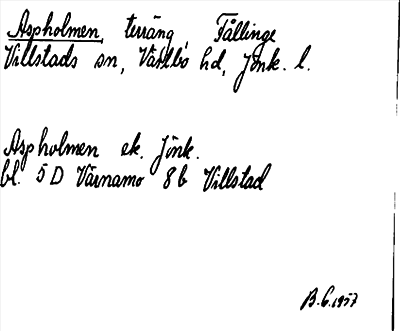 Aspholmen, terräng, Fållinge,
Villstads sn, Västbo hd, Jönk. l.
Aspholmen ek. Jönk.
bl. 5 D Värnamo 8 b Villstad
B.G. 1957